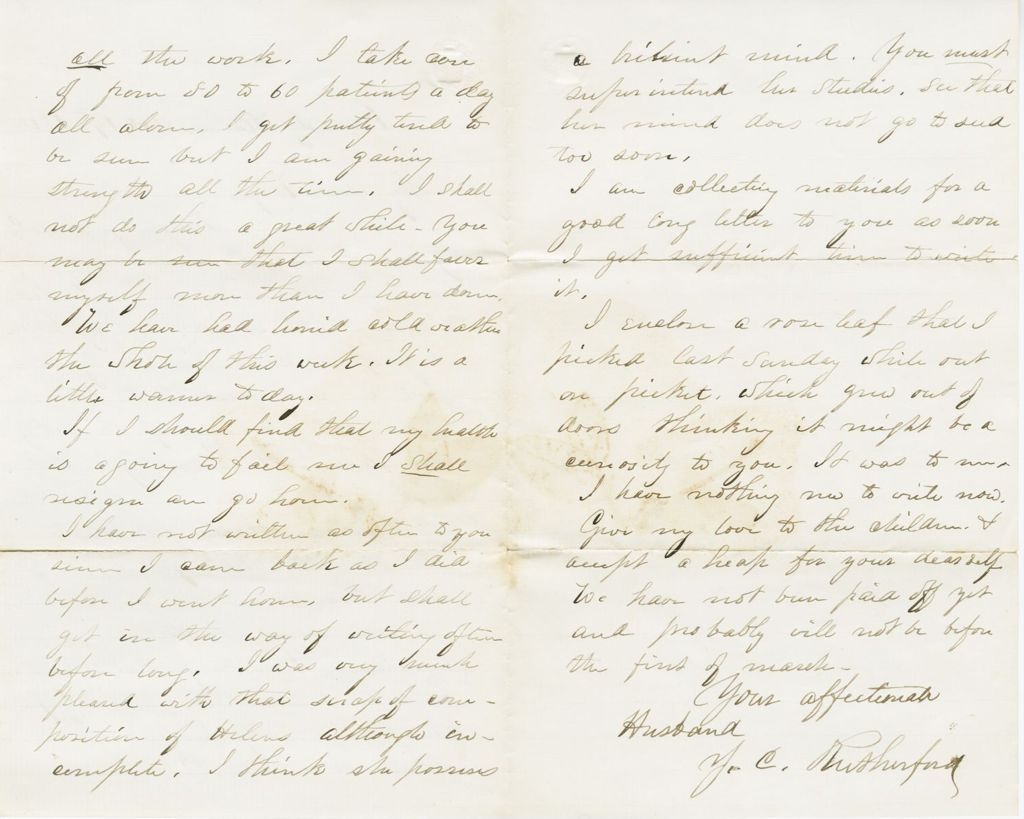 all the work. I take care
of from 50 to 60 patients a day
all alone. I get pretty tired to
be sure but I am gaining
strength all the time. I shall
not do this a great while - You
may be sure that I shall favor
myself more than I have done.
We have had horrid cold weather
the whole of this week. It is a
little warmer today.
If I should find that my health
is agoing to fail me I shall
resign an go home.
I have not written as often to you
since I came back as I did
before I went home, but shall
get in the way of writing often
before long. I was very much
pleased with that scrap of com-
position of Helens although in-
complete. I think she possesses
a brilient mind. You must
superintend her studies. See that
her mind does not go to seed
too soon.
I am collecting materials for a
good long letter to you as soon
I get sufficient time to write
it.
I enclose a rose leaf that I
picked last Sunday while out
on picket. which grew out of
doors thinking it might be a
curiosity to you. It was to me.
I have nothing new to write now.
Give my love to the children. &
accept a heap for your dear self
We have not been paid off yet
and probably will not be before
the first of march -
Your affectionate
Husband
J. C. Rutherford